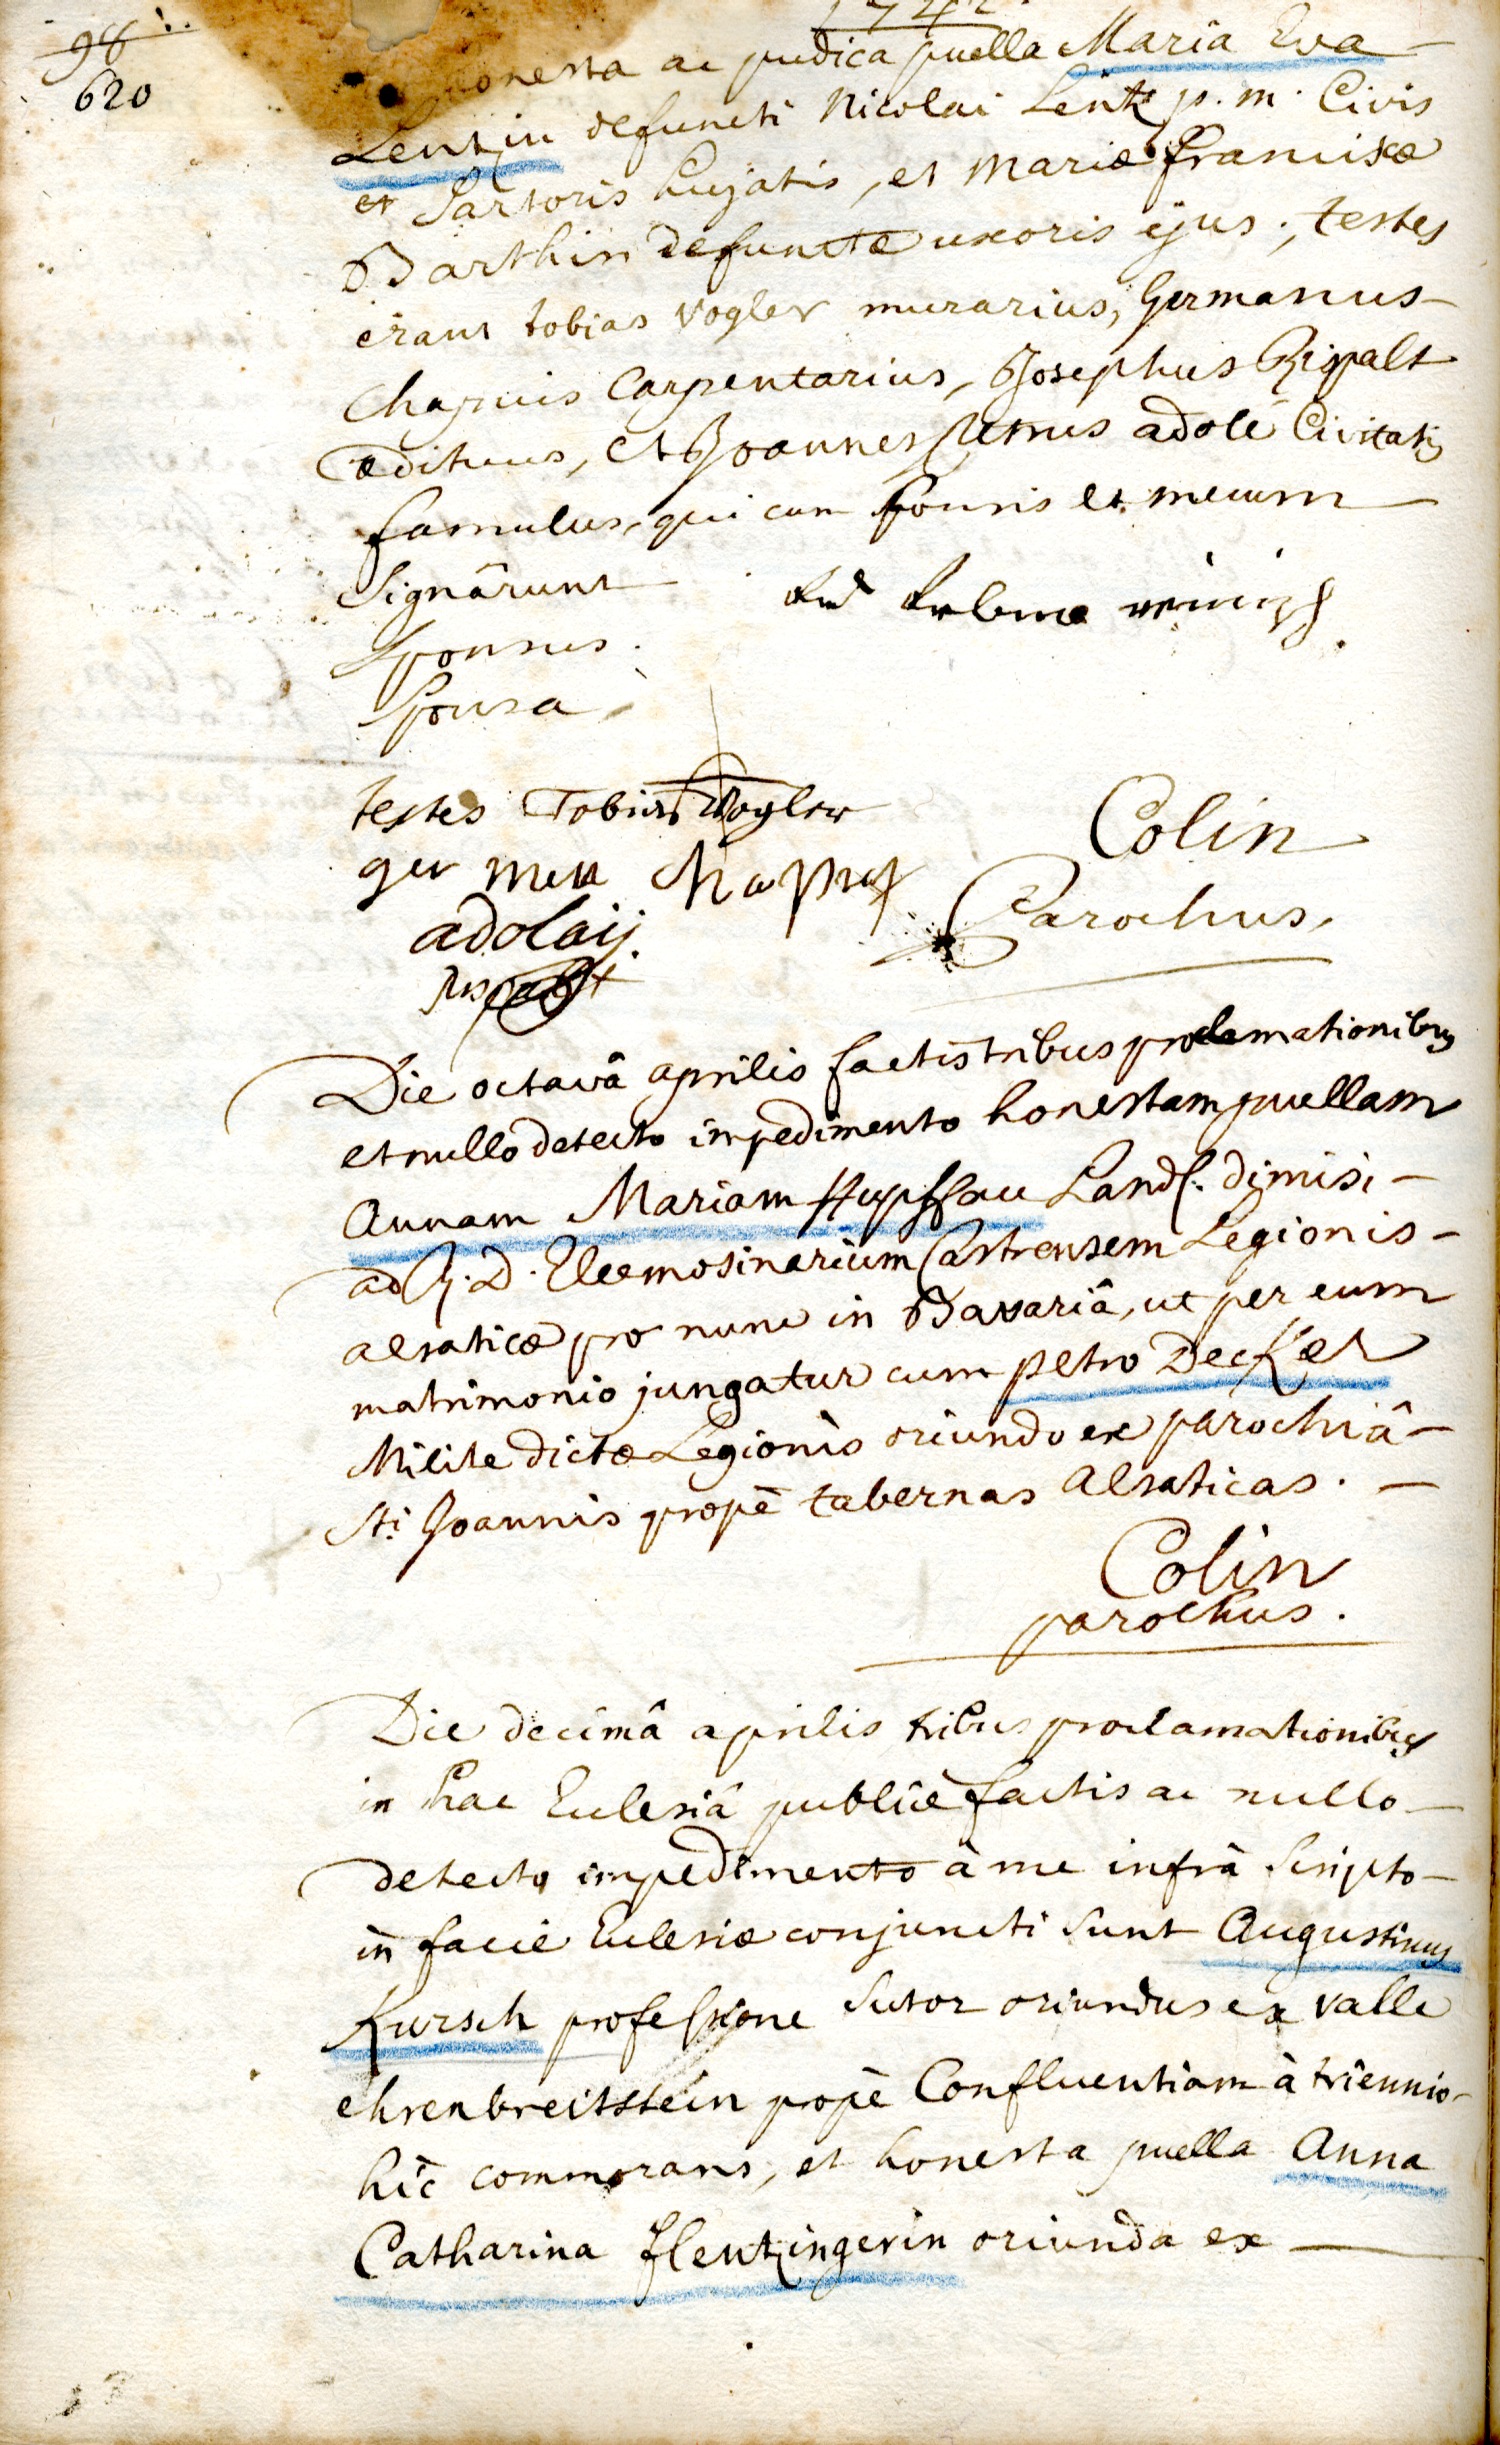 98
620
1742
honesta ac pudica puella Maria Eva
Lentzin defuncti Nicolai Lentz p. m. Civis
et Sartoris hujatis, et Mariæ Franciscæ
Barthin defunctæ uxoris ejus; testes
erant tobias Vogler murarius, Germanus
Chapuis Carpentarius, Josephus Rigpalt
ædituus, et Joannes adole Civitatis
famulus, qui cum sponsis et mecum
Signârunt
Sponsus.
Sponsa
testes Tobias Vogler
ger man
Colin
Parochus.
Die octavâ aprilis factis tribus proclamationibus
et nullo detecto impedimento honestam puellam
Annam Mariam Hupffau Land. dimisi
ad R. D. Eleemosinarium Castrensem Legionis
alsaticæ pro nunc in Bavariâ, ut per eum
matrimonio jungatur cum petro Decker
Milite dictæ Legionis oriundo ex parochiâ
Sti Joannis propè tabernas Alsaticas.
Colin
parochus.
Die decimâ aprilis tribus proclamationibus
in hac Ecclesiâ publicè factis ac nullo
detecto impedimento à me infrà Scripto
in facie Ecclesiæ conjuncti Sunt Augustinus
Kursch professione Sutor oriundus ex valle
ehrenbreitstein propè Confluentiam à triennio
hìc commorans, et honesta puella Anna
Catharina Flentzingerin oriunda ex